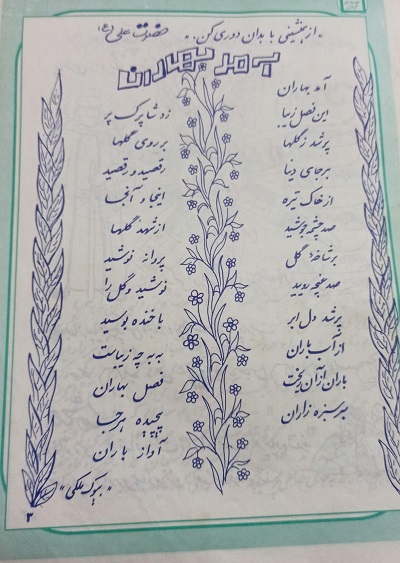 « از همنشینی با بدان دوری کن. » حضرت علی (ع)
آمد بهاران
این فصل زیبا
پر شد ز گلها
هر جای دنیا
از خاک تیره
صد چشمه جوشید
بر شاخهٔ گل
صد غنچه روئید
پر شد دل ابر
از آب باران
باران از آن ریخت
بر سبزه زاران
زد شاپرک پر
بر روی گلها
رقصید و رقصید
اینجا و آنجا
از شهد گلها
پروانه نوشید
نوشید و گل را
با خنده بوسید
به به چه زیباست
فصل بهاران
پیچیده هر جا
آواز باران
« بیوک ملکی »
۳